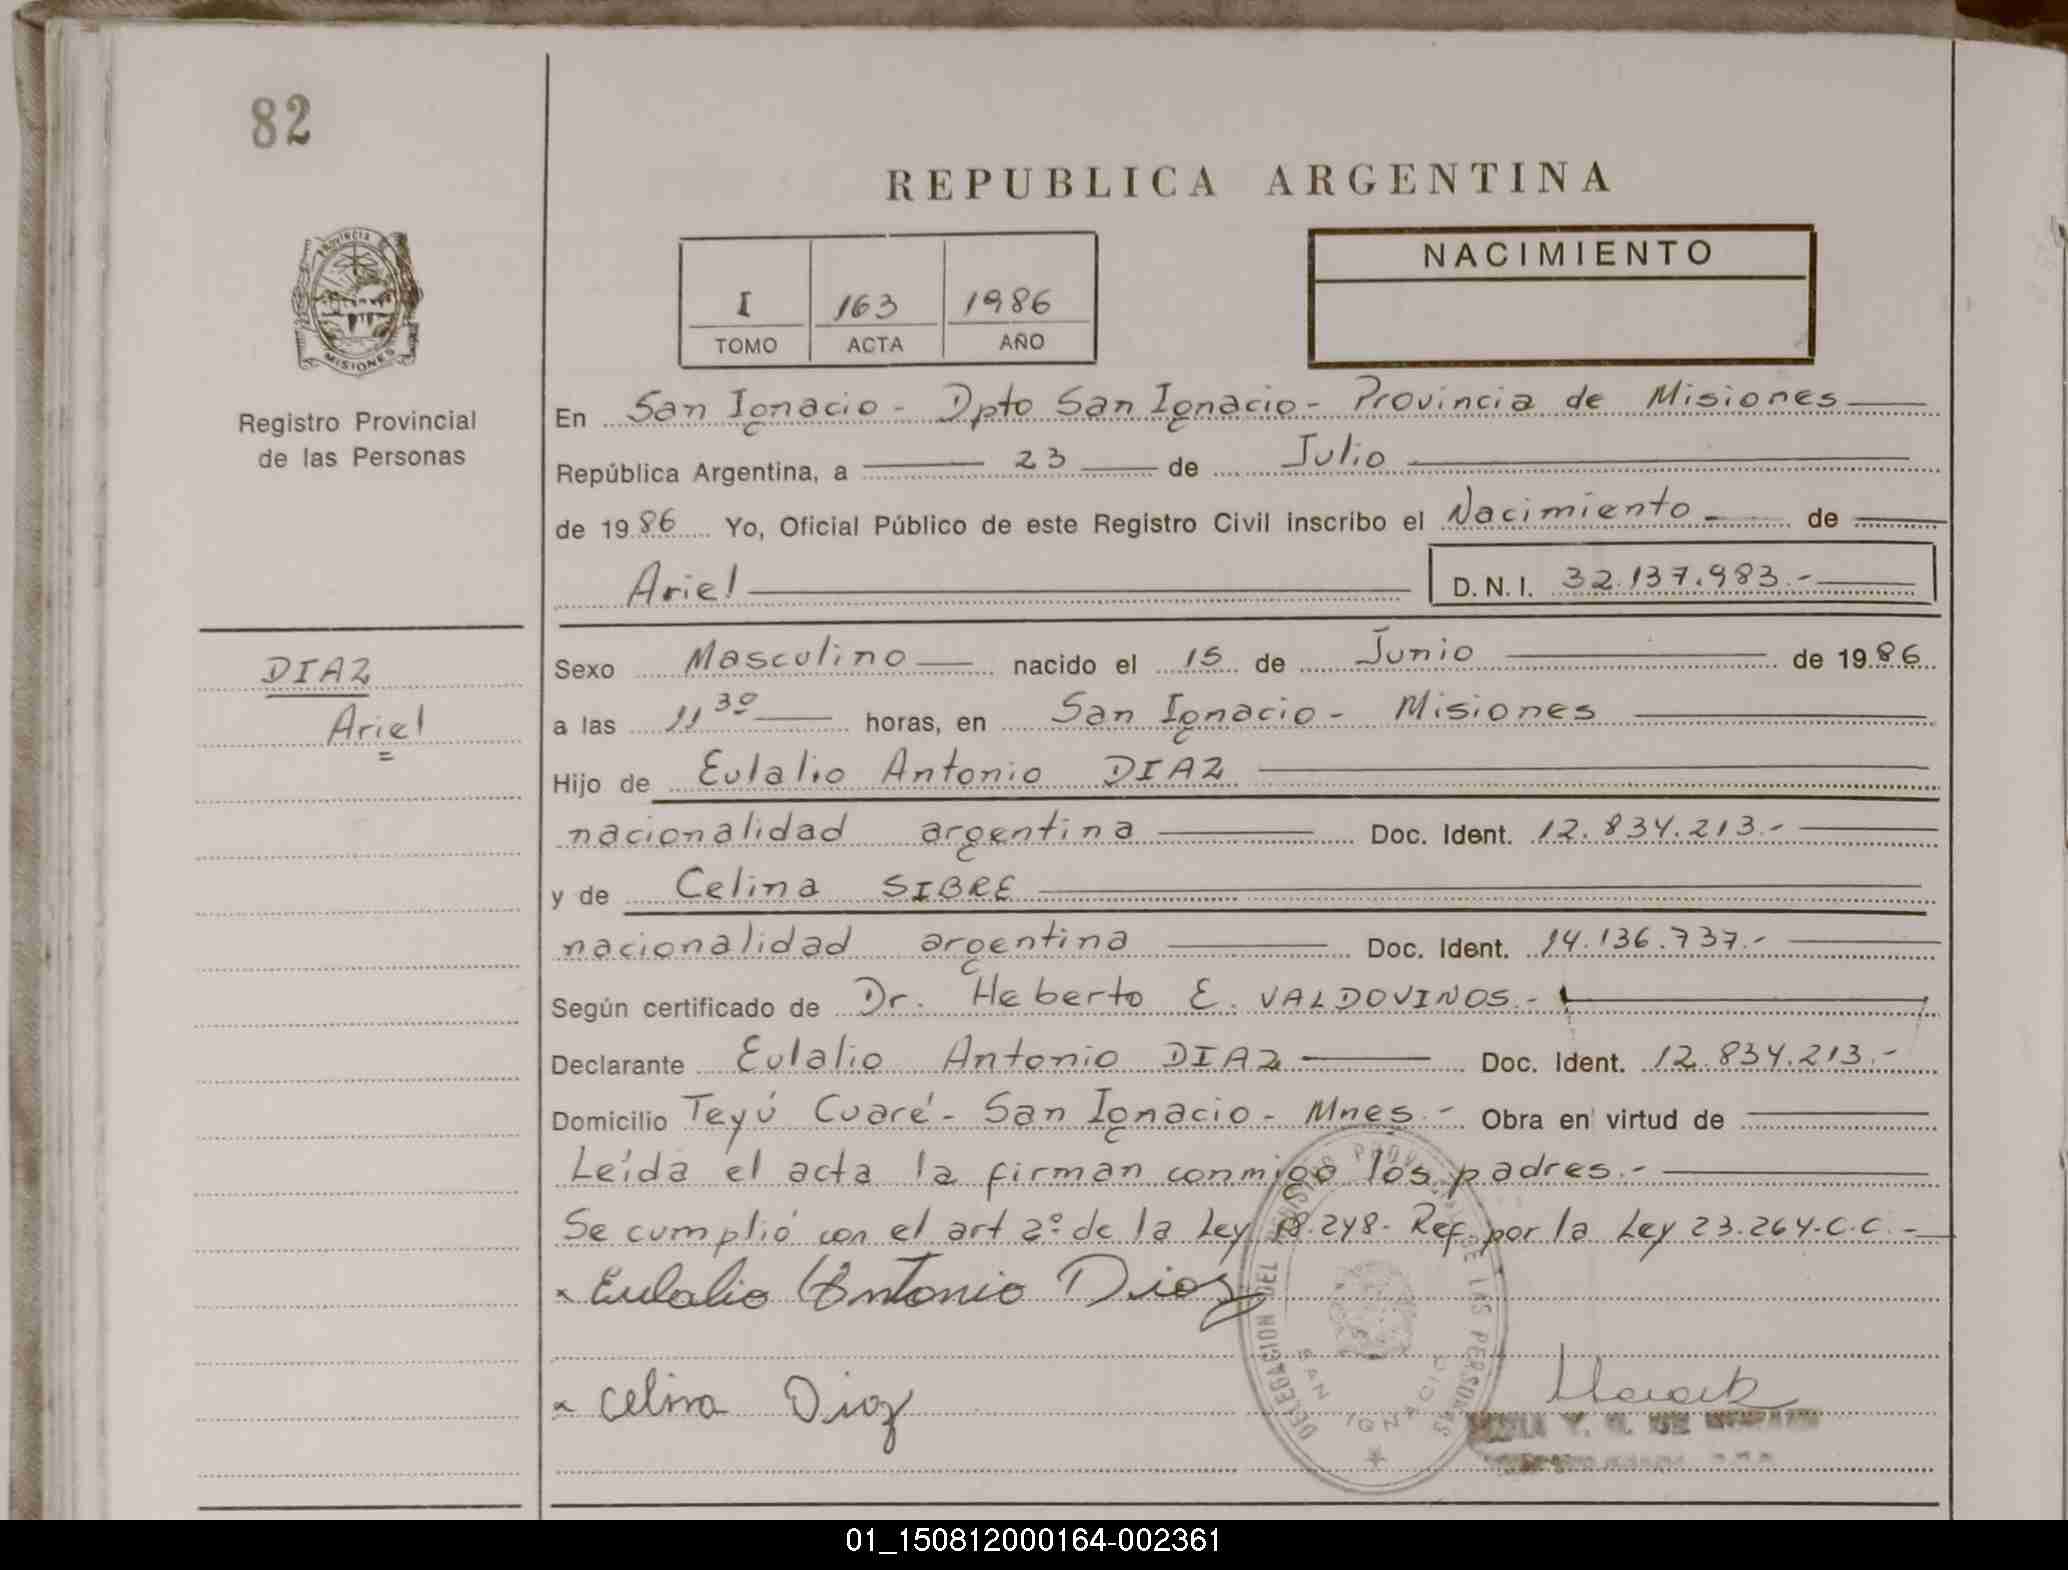 82
REPUBLICA ARGENTINA
PROVINCIA DE
MISIONES
Registro Provincial
de las Personas
I 163 1986
TOMO ACTA AÑO
NACIMIENTO
En San Ignacio - Dpto San Ignacio - Provincia de Misiones
República Argentina, a 23 de Julio
de 1986 Yo, Oficial Público de este Registro Civil inscribo el Nacimiento - de
Ariel D. N. I. 32.137.983.-
DIAZ
Ariel
Sexo Masculino nacido el 15 de Junio de 1986
a las 11 30 horas, en San Ignacio - Misiones
Hijo de Eulalio Antonio DIAZ
nacionalidad argentina Doc. Ident. 12.834.213.-
y de Celina SIBRE
nacionalidad argentina Doc. Ident. 14.136.737.-
Según certificado de Dr. Heberto E. VALDOVINOS.-
Declarante Eulalio Antonio DIAZ Doc. Ident. 12.834.213.-
Domicilio Teyú Cuaré - San Ignacio - Mnes.- Obra en virtud de
Leída el acta la firman conmigo los padres.-
Se cumplió con el art 2º de la Ley 18.248- Ref. por la Ley 23.264-C.C.-
x Eulalio Antonio Diaz
x Celina Diaz
DELEGACION DEL REGISTRO PROVINCIAL DE LAS PERSONAS
SAN IGNACIO
Y. G. DE
01_150812000164-002361